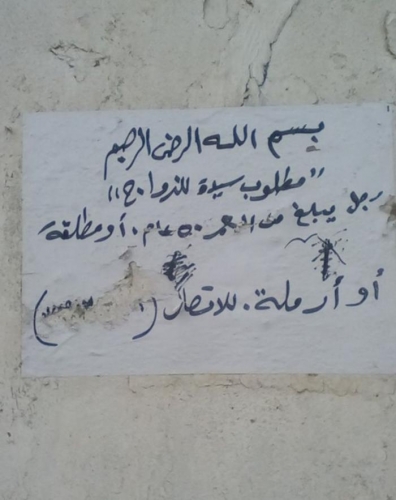 بسم الله الرحمن الرحيم
"مطلوب سيدة للزواج"
رجل يبلغ من العمر ٥٠ عام. أو مطلقة
أو أرملة. للاتصال (